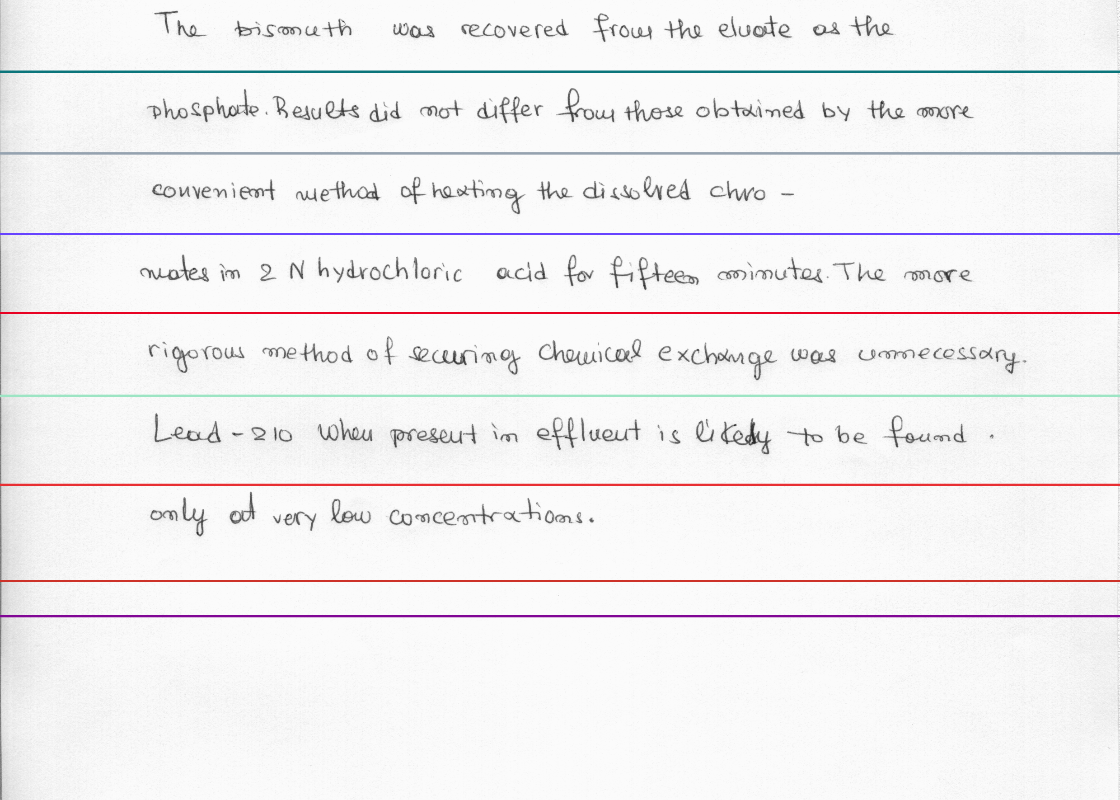 The bismuth was recovered from the eluate as the
phosphate. Results did not differ from those obtained by the more
convenient method of heating the dissolved chro -
mates in 2 N hydrochloric acid for fifteen minutes. The more
rigorous method of securing Chemical exchange was unnecessary.
Lead - 210 When present in effluent is likely to be found .
only at very low concentrations.